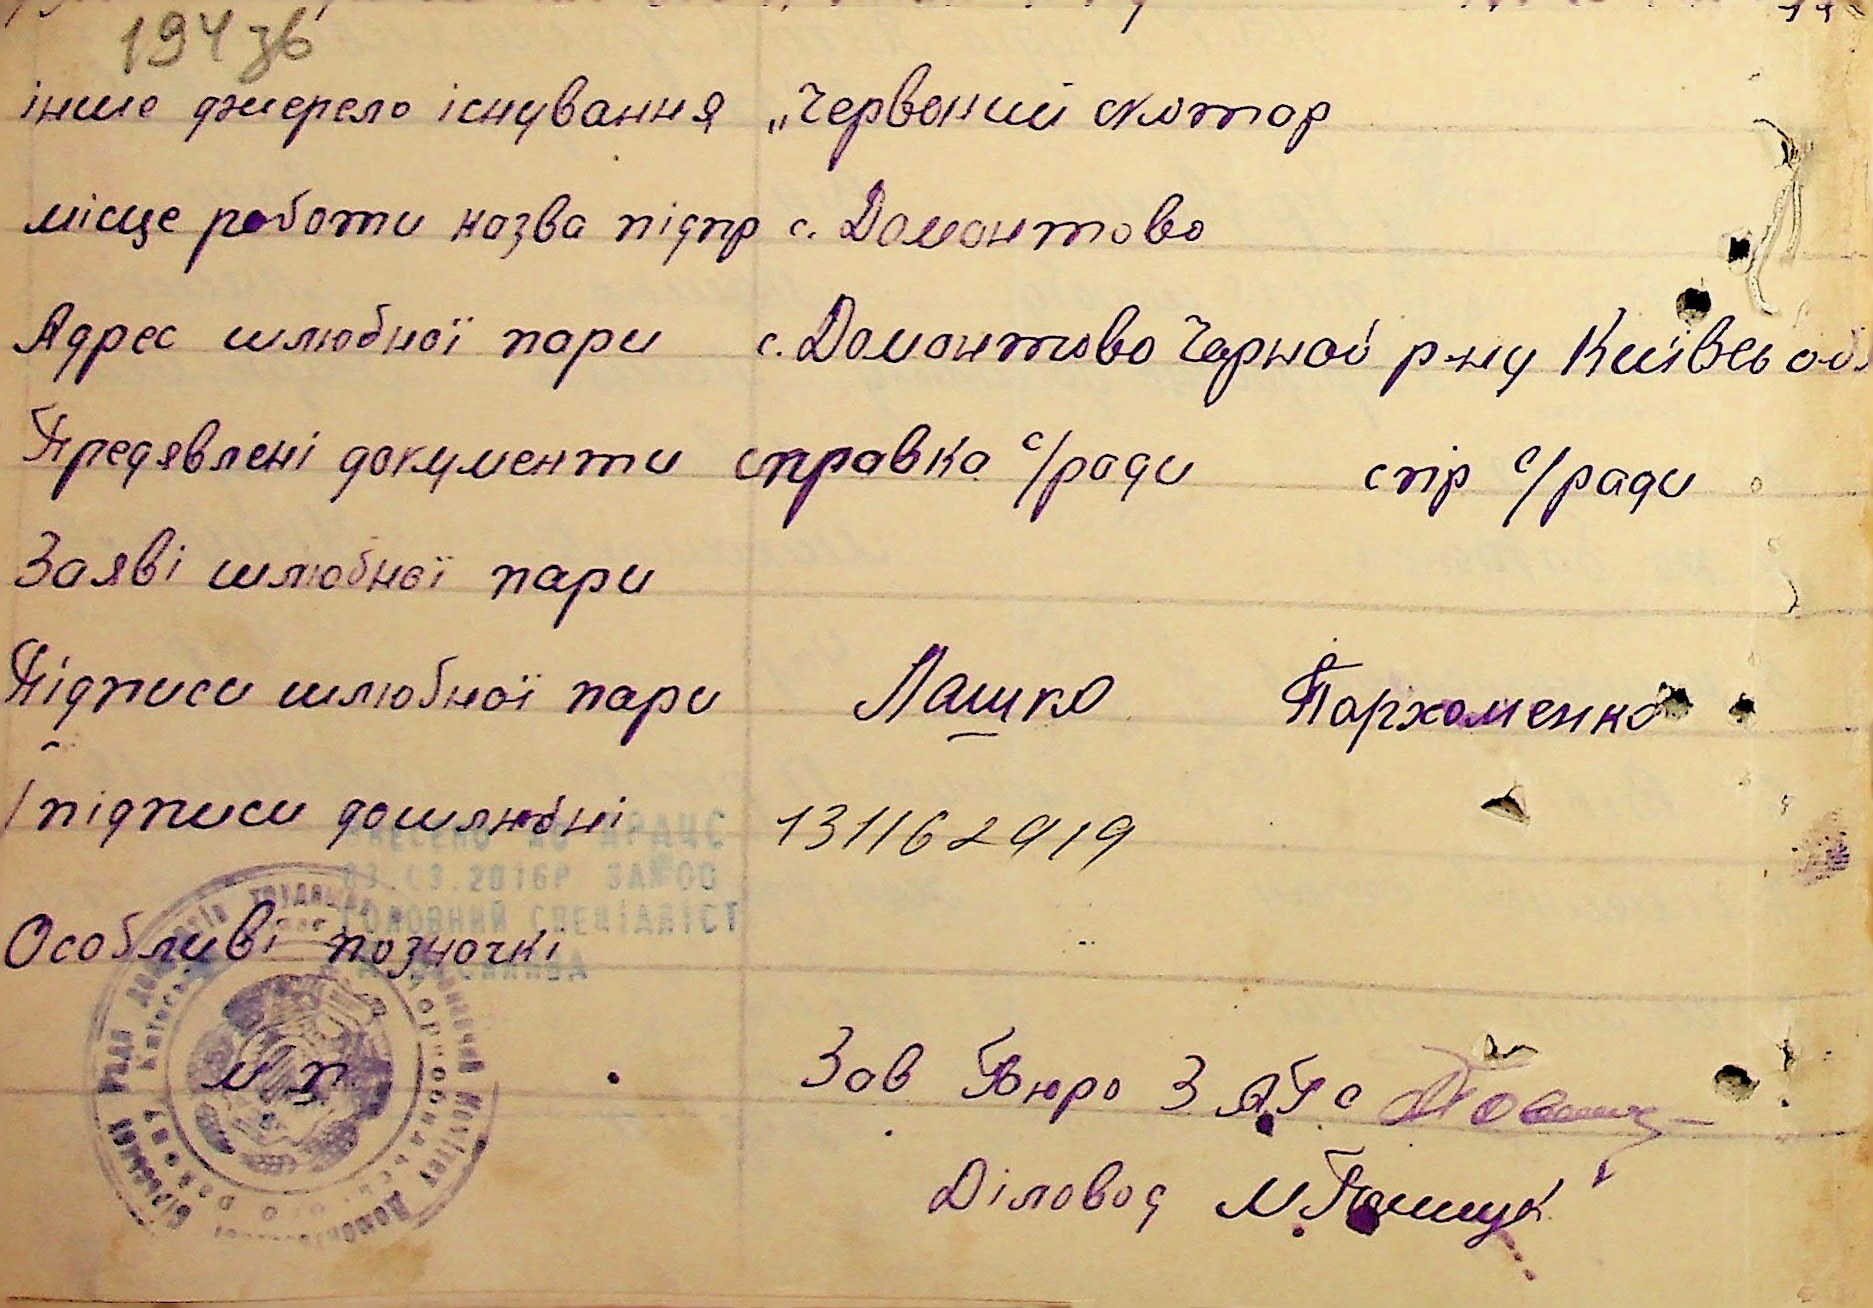 194 зв
інше джерело існування „Червоний скотар
місце роботи назва підпр с. Домонтово
Адрес шлюбної пари с. Домонтово Чорноб р-ну Київсь обл
Предявлені документи справка с/ради спр с/ради
Заяві шлюбної пари
Підписи шлюбної пари Лашко Пархоменко
/підписи дошлюбні 131162919
ВНЕСЕНО ДО ДРАЦС
03.03.2016Р
ГОЛОВНИЙ СПЕЦІАЛІСТ
Особливі позночкі
м п
Зав Бюро ЗАГС
Діловод М